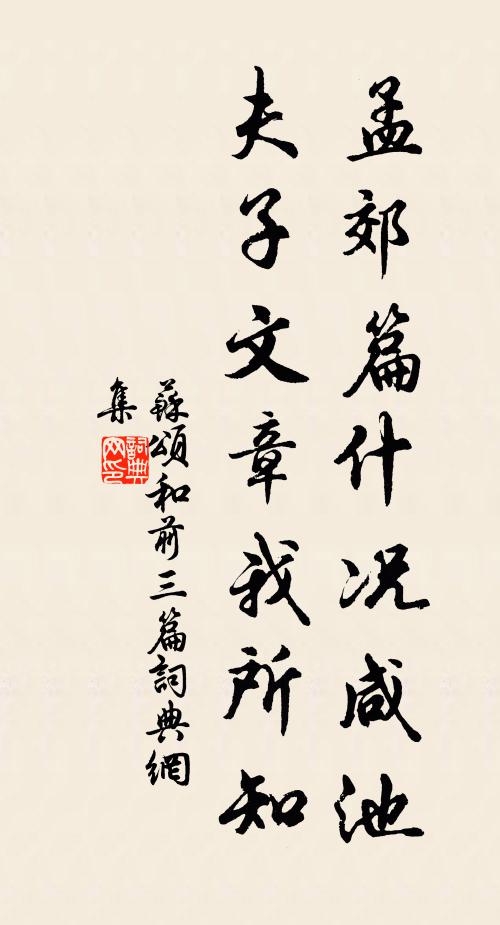 孟郊篇什况咸池
夫子文章我所知
蘇頌和前三篇詞典網
集
詞典网印